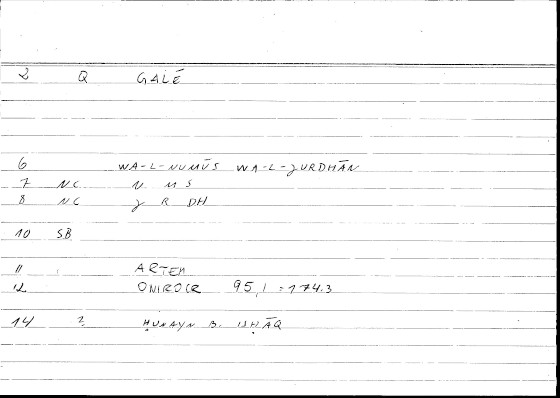 2 Q GALĒ
6 WA-L-NUMŪS WA-L-ǧURDHĀN
7 NC N M S
8 NC ǧ R DH
10 SB
11 ARTEM
12 ONIROCR 95,1 = 174.3
14 2 ḤUNAYN B. ISḤĀQ